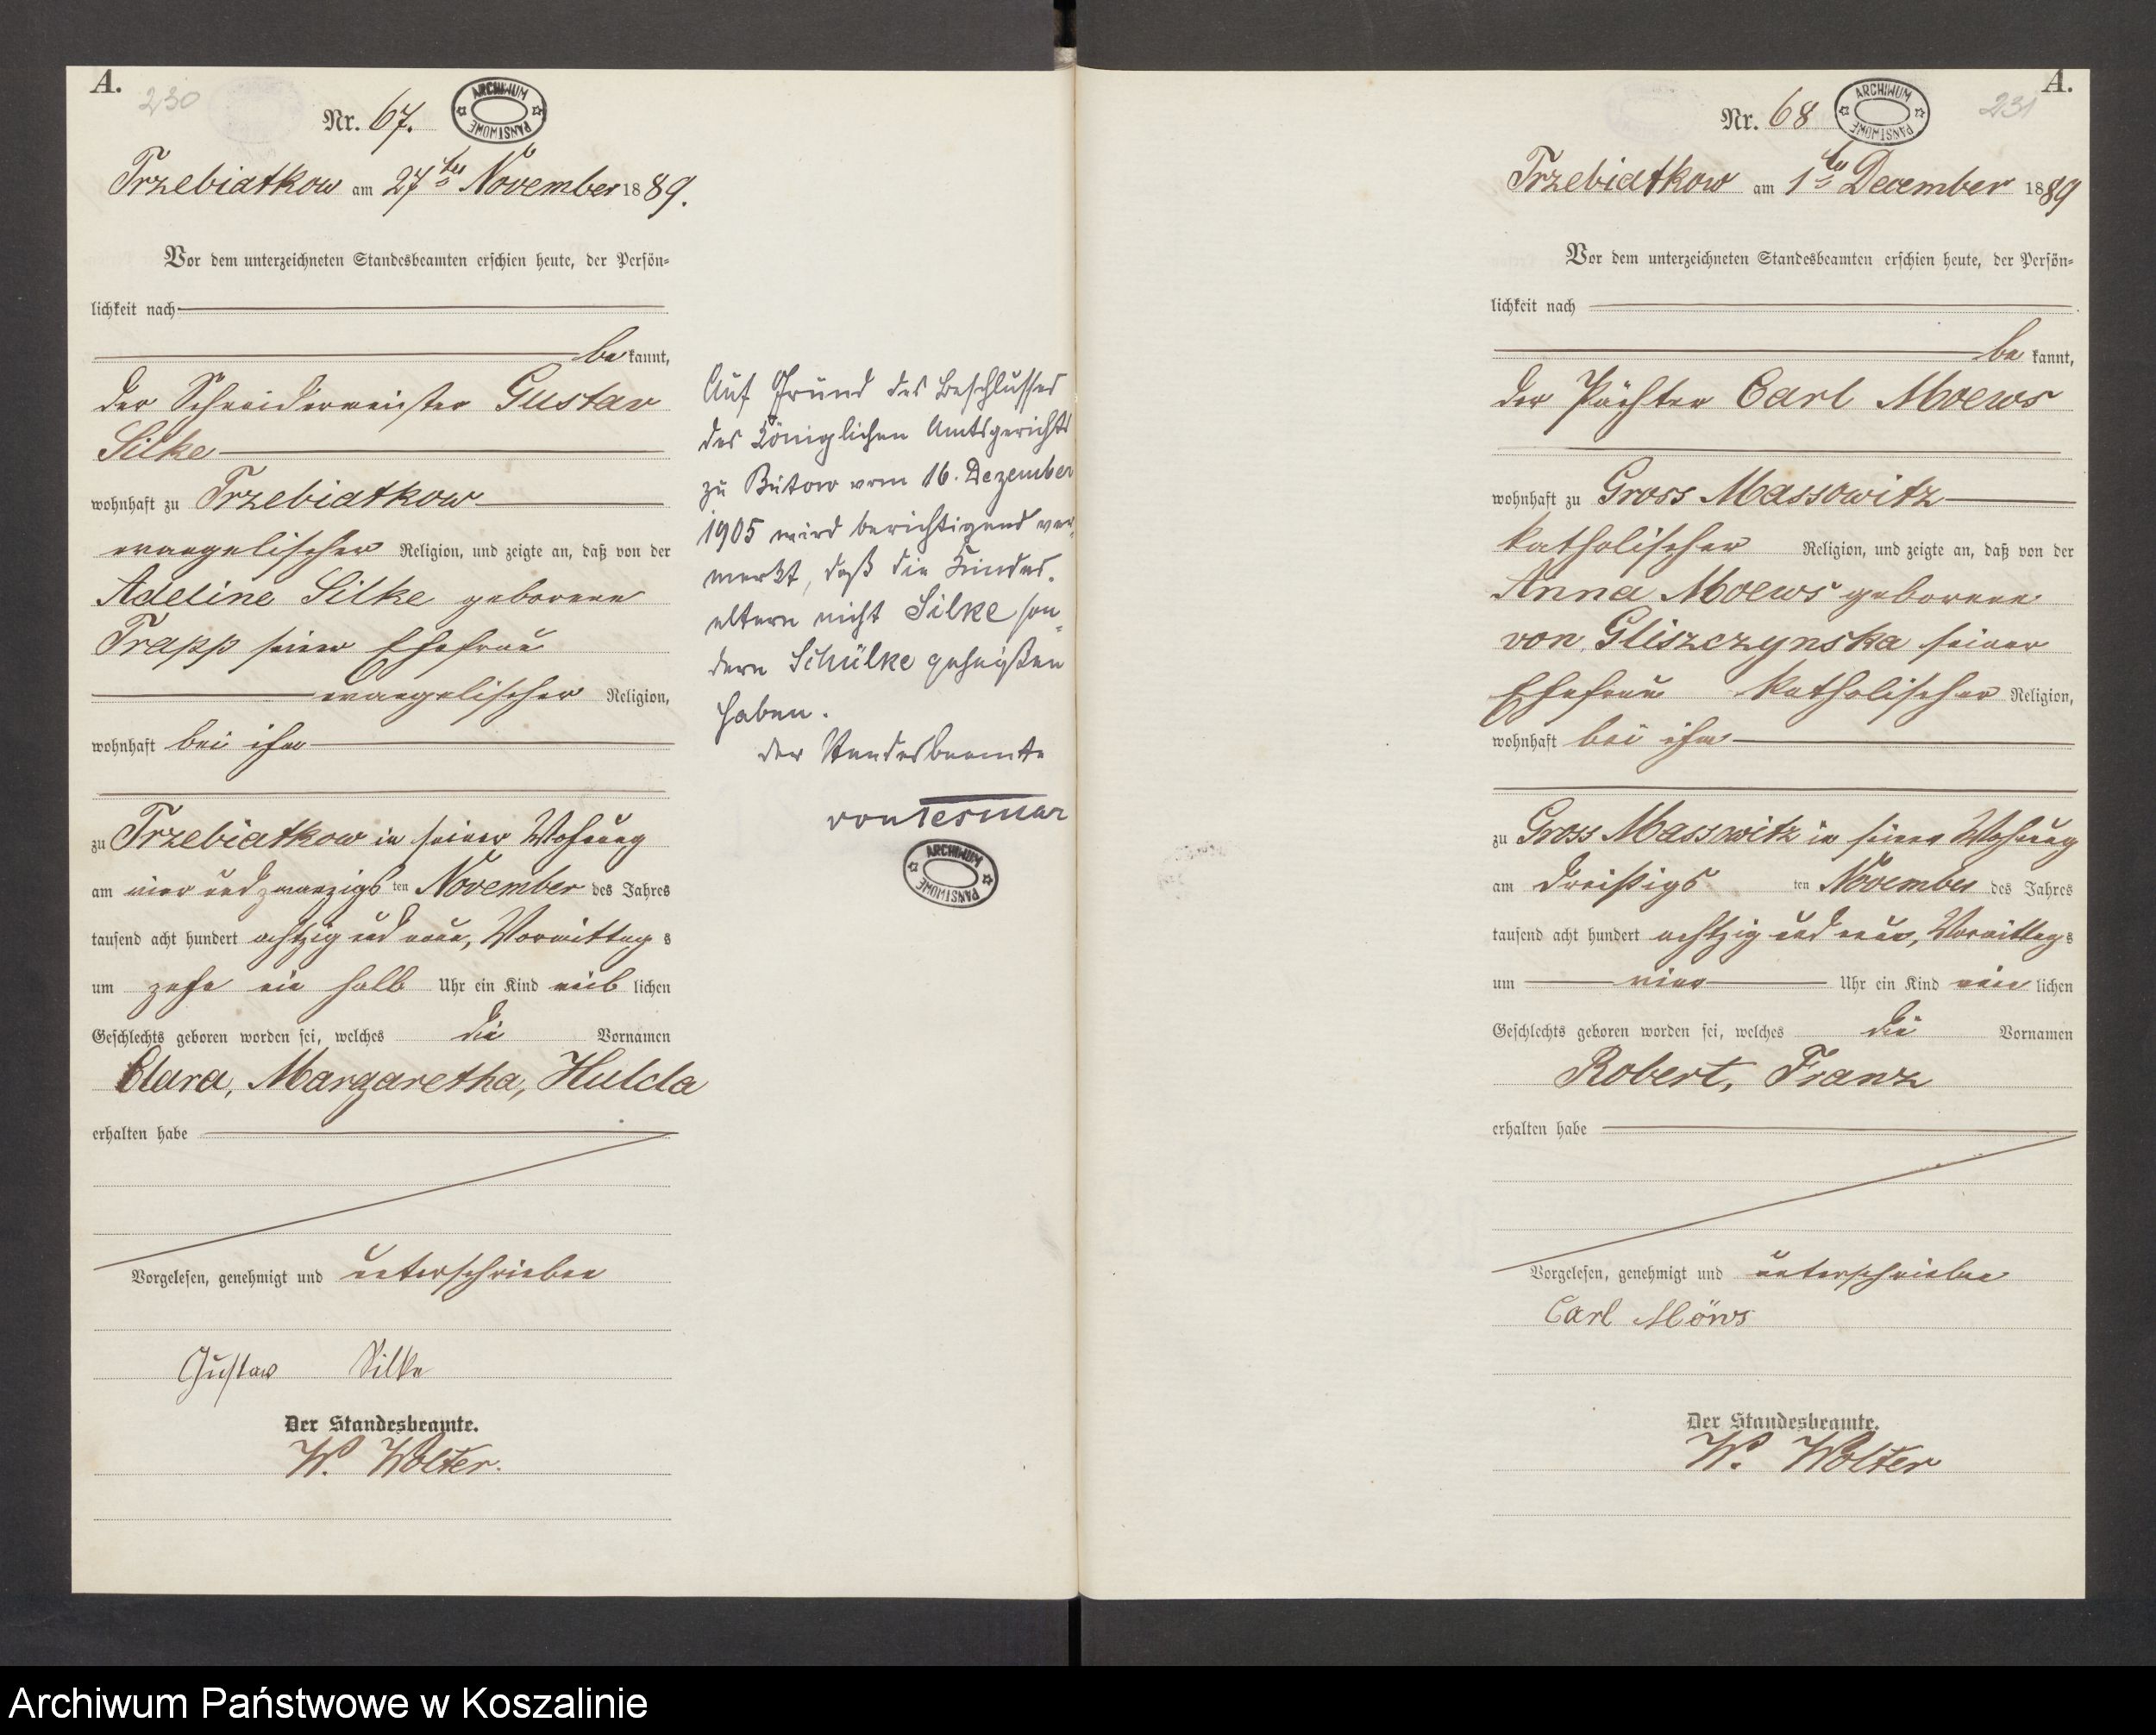 A.
230
Nr. 67.
ARCHIWUM PAŃSTWOWE
Trzebiatkow am 27ten November 1889.
Vor dem unterzeichneten Standesbeamten erschien heute, der Persön-
lichkeit nach
be kannt,
der Schneidermeister Gustav
Silke
wohnhaft zu Trzebiatkow
evangelischer Religion, und zeigte an, daß von der
Adeline Silke geborene
Trapp seiner Ehefrau
evangelischer Religion,
wohnhaft bei ihm
zu Trzebiatkow in seiner Wohnung
am vier und zwanzigs ten November des Jahres
tausend acht hundert achtzig und neun, Vormittag s
um zehn ein halb Uhr ein Kind weib lichen
Geschlechts geboren worden sei, welches die Vornamen
Clara, Margaretha, Hulda
erhalten habe
Vorgelesen, genehmigt und unterschrieben
Gustaw Silke
Der Standesbeamte.
W. Wolter.
Auf Grund des Beschlusses
des Königlichen Amtsgerichts
zu Bütow vom 16. Dezember
1905 wird berichtigend ver-
merkt, daß die Kindes-
eltern nicht Silke son-
dern Schülke geheißen
haben.
Der Standesbeamte
von Tesmar
ARCHIWUM PAŃSTWOWE
A.
231
Nr. 68
ARCHIWUM PAŃSTWOWE
Trzebiatkow am 1ten December 1889
Vor dem unterzeichneten Standesbeamten erschien heute, der Persön-
lichkeit nach
be kannt,
der Pächter Carl Moews
wohnhaft zu Gross Massowitz
katholischer Religion, und zeigte an, daß von der
Anna Moews geborene
von Gliszczynska seiner
Ehefrau katholischer Religion,
wohnhaft bei ihm
zu Gross Massowitz in seiner Wohnung
am dreißigs ten November des Jahres
tausend acht hundert achtzig und neun, Vormittag s
um vier Uhr ein Kind män lichen
Geschlechts geboren worden sei, welches die Vornamen
Robert, Franz
erhalten habe
Vorgelesen, genehmigt und unterschrieben
Carl Möws
Der Standesbeamte.
W. Wolter
Archiwum Państwowe w Koszalinie